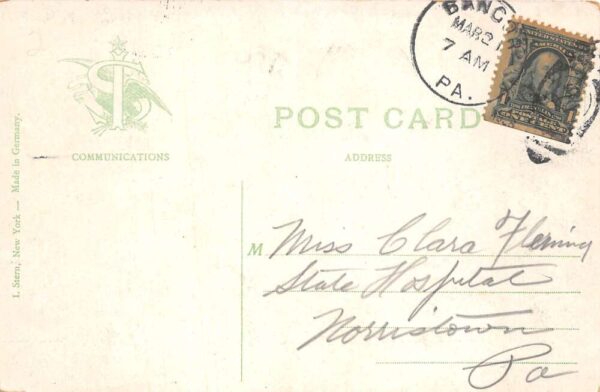 BANGOR
MAR 21
7 AM
PA.
POST CARD
COMMUNICATIONS
ADDRESS
I. Stern, New York — Made in Germany.
M Miss Clara Fleming
State Hospital
Norristown
Pa